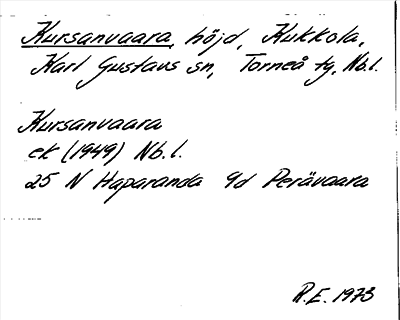 Kursanvaara, höjd, Kukkola,
Karl Gustavs sn, Torneå tg, Nb.l.
Kursanvaara
ek (1949) Nb.l.
25 N Haparanda 9d Perävaara
R.E. 1973